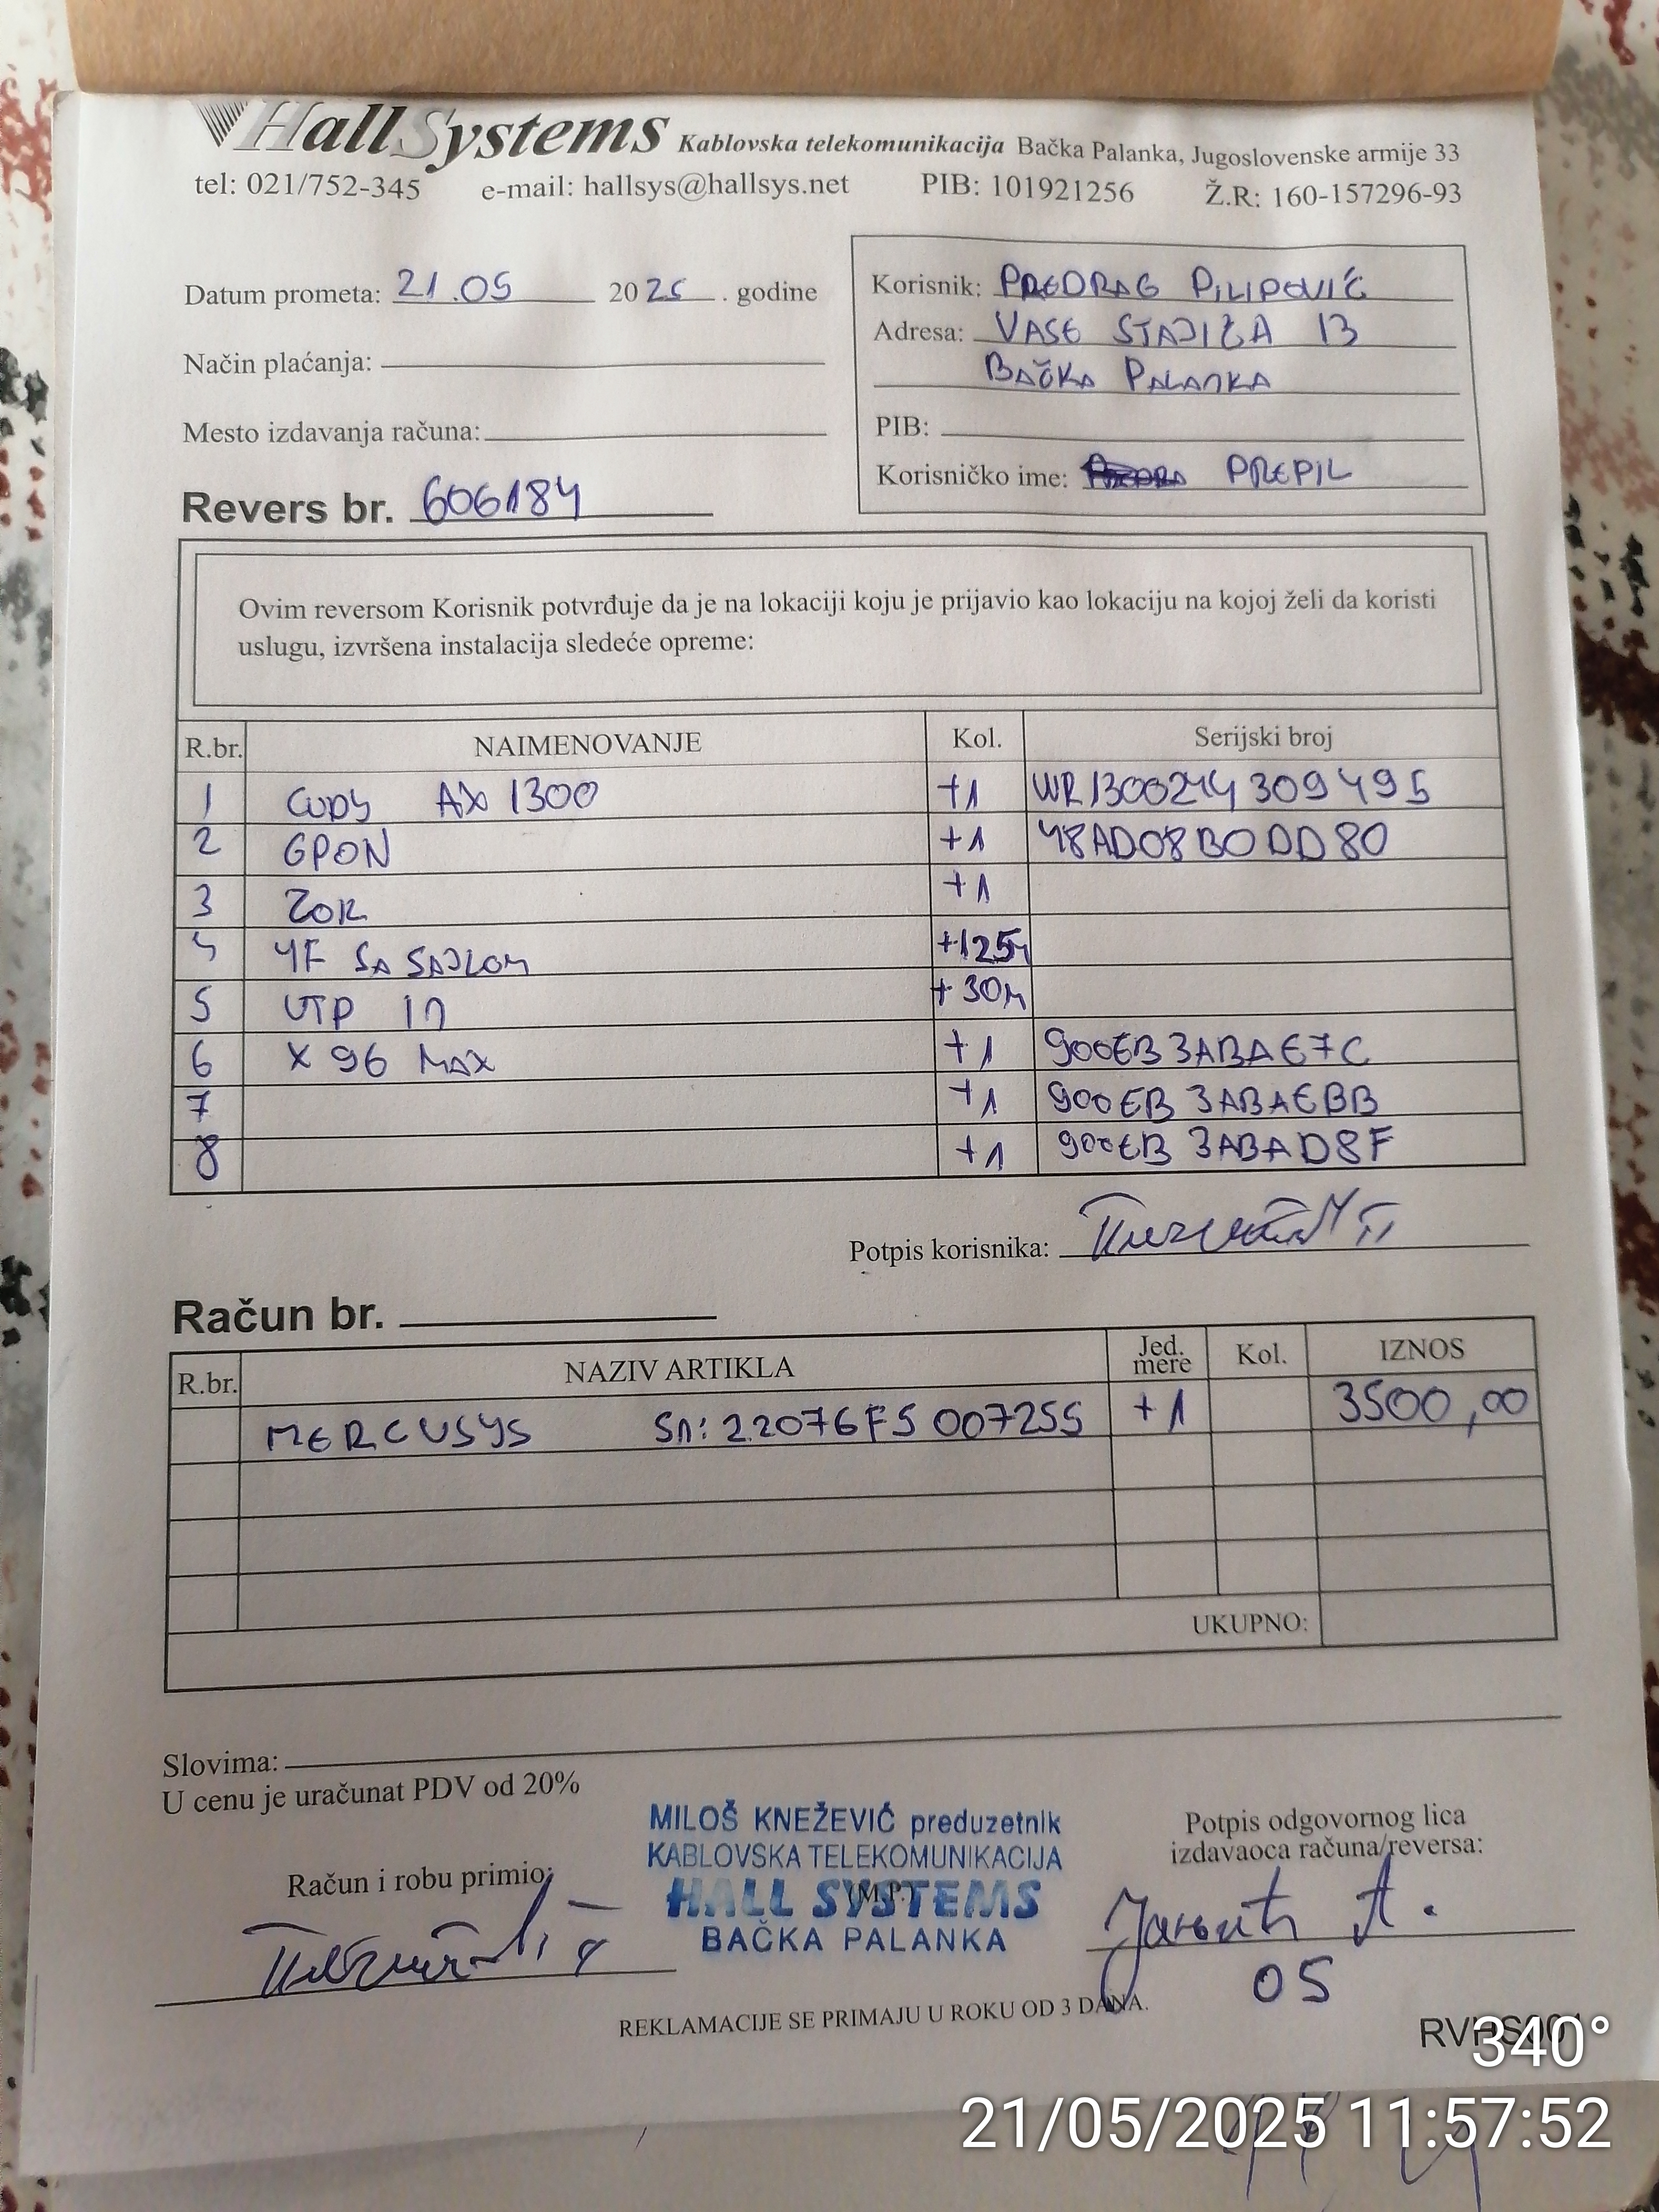 HallSystems Kablovska telekomunikacija Bačka Palanka, Jugoslovenske armije 33
tel: 021/752-345 e-mail: hallsys@hallsys.net PIB: 101921256 Ž.R: 160-157296-93
Datum prometa: 21.05 2025. godine
Način plaćanja:
Mesto izdavanja računa:
Revers br. 606184
Korisnik: PREDRAG PILIPOVIĆ
Adresa: VASE STAJIĆA 13
BAČKA PALANKA
PIB:
Korisničko ime: PREPIL
Ovim reversom Korisnik potvrđuje da je na lokaciji koju je prijavio kao lokaciju na kojoj želi da koristi
uslugu, izvršena instalacija sledeće opreme:
R.br. NAIMENOVANJE Kol. Serijski broj
1 CUDY AX 1300 +1 WR1300244309495
2 GPON +1 48AD08B0DD80
3 ZOK +1
4 4F SA SAJLOM +125m
5 UTP IN +30m
6 X 96 MAX +1 900EB3ABAE7C
7 +1 900EB3ABAEBB
8 +1 900EB3ABAD8F
Potpis korisnika:
Račun br.
R.br. NAZIV ARTIKLA Jed. mere Kol. IZNOS
MERCUSYS SN: 22076F5007255 +1 3500,00
UKUPNO:
Slovima:
U cenu je uračunat PDV od 20%
MILOŠ KNEŽEVIĆ preduzetnik
KABLOVSKA TELEKOMUNIKACIJA
HALL SYSTEMS
(M.P.)
BAČKA PALANKA
Račun i robu primio:
Potpis odgovornog lica
izdavaoca računa/reversa:
05
REKLAMACIJE SE PRIMAJU U ROKU OD 3 DANA.
340°
21/05/2025 11:57:52